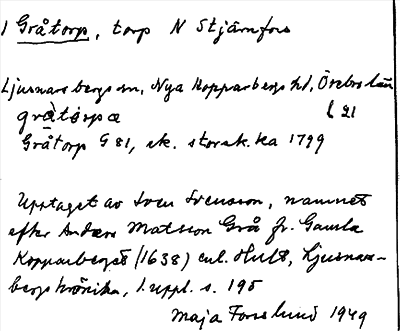 1 Gråtorp, torp N Stjärnfors
Ljusnarsbergs sn, Nya Kopparbergs hd, Örebro län
gràtórpa
Gråtorp G 81, sk. storsk.ka 1799
Upptaget av Sven Svensson, namnet
efter Anders Matsson Grå fr. Gamla
Kopparberget (1638) enl. Hult, Ljusnars-
bergskrönika, 1. uppl. s. 195
Maja Forsslund 1949